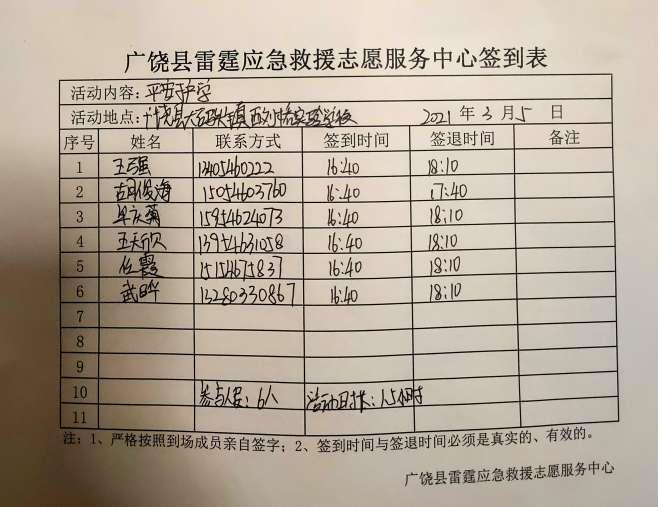 广饶县雷霆应急救援志愿服务中心签到表
活动内容：平安护学
活动地点：广饶县大码头镇西刘桥实验学校 2021年3月5日
序号 姓名 联系方式 签到时间 签退时间 备注
1 王强 13405460222 16:40 18:10
2 胡俊海 15054603760 16:40 17:40
3 牟庆菊 15954624073 16:40 18:10
4 王天欣 13954631058 16:40 18:10
5 任霞 15154675837 16:40 18:10
6 武晔 13280330867 16:40 18:10
7
8
9
10 参与人员：6人 活动时长：1.5小时
11
注：1、严格按照到场成员亲自签字；2、签到时间与签退时间必须是真实的、有效的。
广饶县雷霆应急救援志愿服务中心